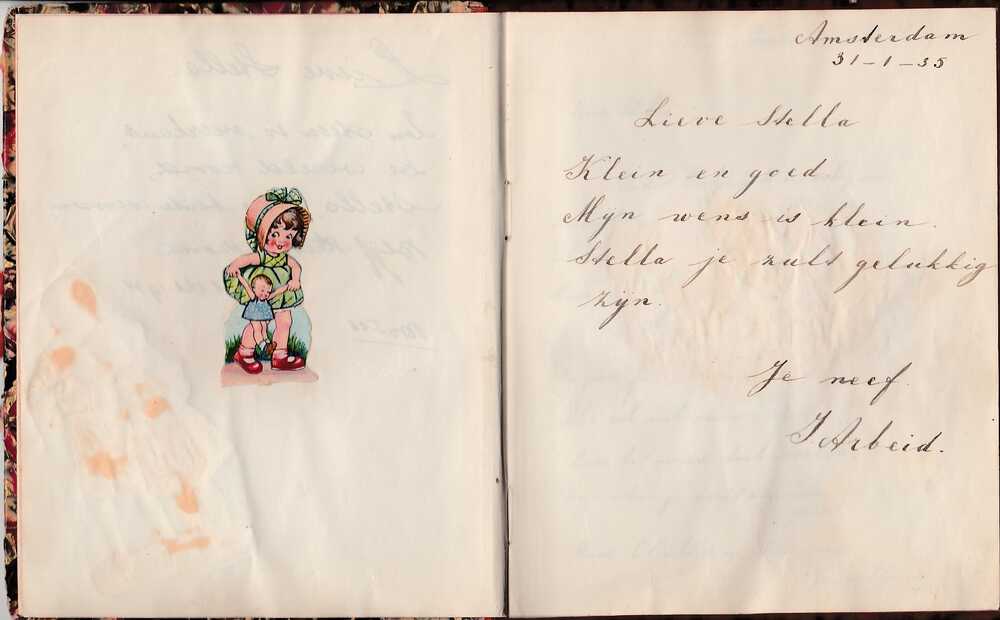 Amsterdam
31-1-35
Lieve Stella
Klein en goed
Myn wens is klein.
Stella je zult gelukkig
zijn.
Je neef.
J Arbeid.